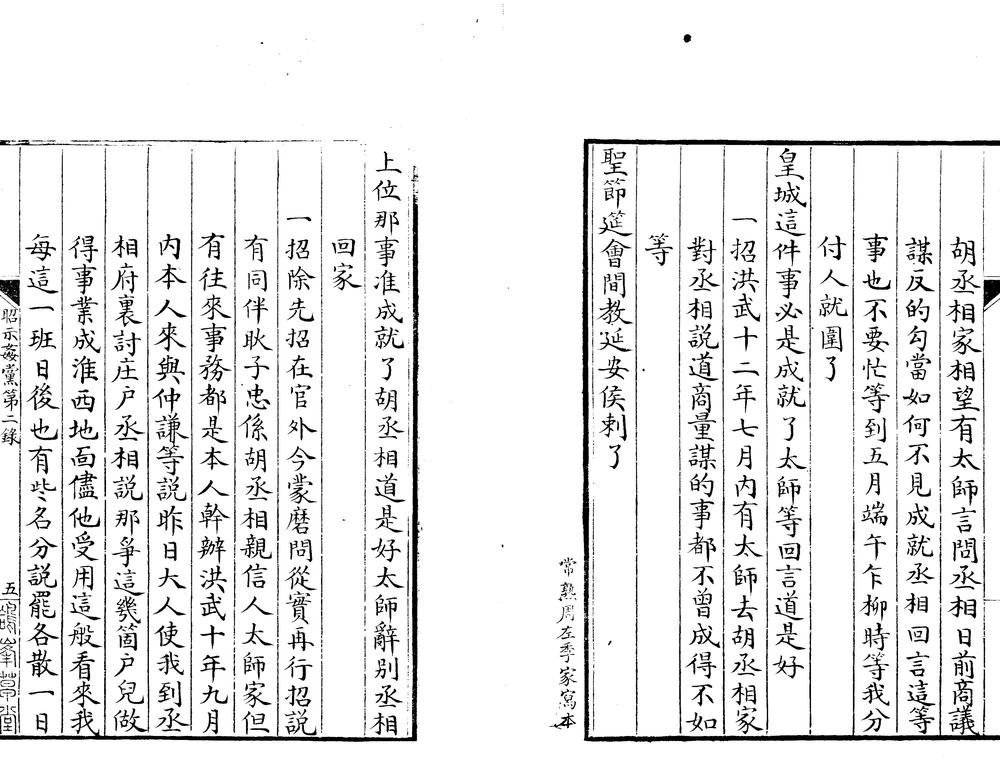 胡丞相家相望有太師言問丞相日前商議
謀反的勾當如何不見成就丞相回言這等
事也不要忙等到五月端午乍柳時等我分
付人就圍了
皇城這件事必是成就了太師等回言道是好
一招洪武十二年七月內有太師去胡丞相家
對丞相說道商量謀的事都不曾成得不如
等
聖節筵會間教延安侯刺了
常熟周左季家寫本
上位那事准成就了胡丞相道是好太師辭别丞相
回家
一招除先招在官外今蒙磨問從實再行招説
有同伴耿子忠係胡丞相親信人太師家但
有往來事務都是本人幹辦洪武十年九月
內本人來與仲謙等説昨日大人使我到丞
相府裏討庄户丞相説那爭這幾箇户兒做
得事業成淮西地面儘他受用這般看來我
每這一班日後也有些名分説罷各散一日
昭示姦黨第二錄
五